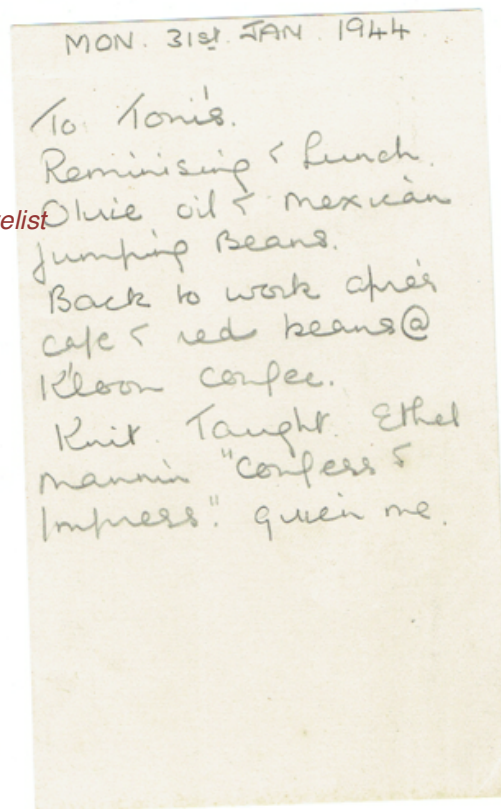 MON. 31st JAN 1944
To Toni's.
Reminising & Lunch.
elist
Olive oil & Mexican
Jumping Beans.
Back to work après
cafe & red beans @
K'loon confee.
Knit. Taught. Ethel
Mannin "Confess &
Impress". given me.